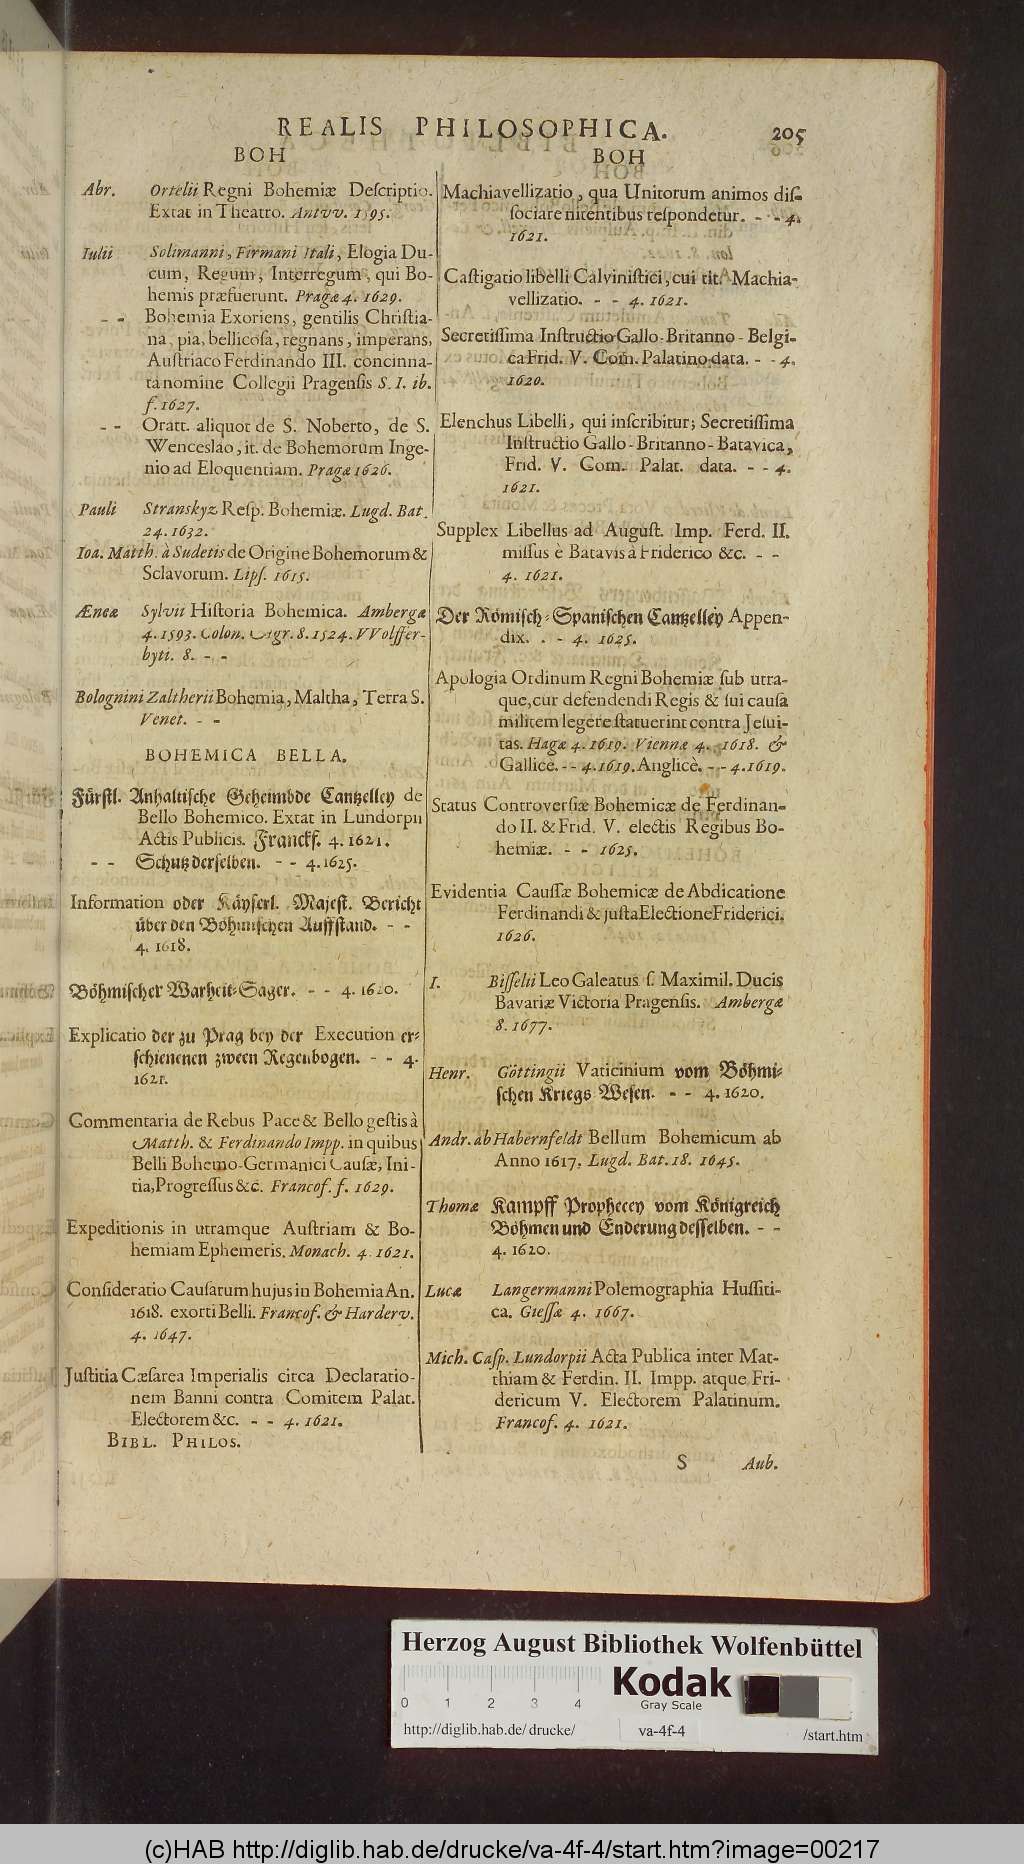 REALIS PHILOSOPHICA. 205
BOH
Abr. Ortelii Regni Bohemiæ Deſcriptio.
Extat in Theatro. Antvv. 1595.
Iulii Solimanni, Firmani Itali, Elogia Du-
cum, Regum, Interregum, qui Bo-
hemis præfuerunt. Pragæ 4. 1629.
- - Bohemia Exoriens, gentilis Chriſtia-
na, pia, bellicoſa, regnans, imperans,
Auſtriaco Ferdinando III. concinna-
ta nomine Collegii Pragenſis S. I. ib.
f. 1627.
- - Oratt. aliquot de S. Noberto, de S.
Wenceslao, it. de Bohemorum Inge-
nio ad Eloquentiam. Pragæ 1626.
Pauli Stranskyz Reſp. Bohemiæ. Lugd. Bat.
24. 1632.
Ioa. Matth. à Sudetis de Origine Bohemorum &
Sclavorum. Lipſ. 1615.
Æneæ Sylvii Hiſtoria Bohemica. Ambergæ
4. 1593. Colon. Agr. 8. 1524. VVolffer-
byti. 8. - -
Bolognini Zaltherii Bohemia, Maltha, Terra S.
Venet. - -
BOHEMICA BELLA.
Fürſtl. Anhaltiſche Geheimbde Cantzelley de
Bello Bohemico. Extat in Lundorpii
Actis Publicis. Franckf. 4. 1621.
- - Schutz derſelben. - - 4. 1625.
Information oder Käyſerl. Majeſt. Bericht
über den Böhmiſchen Auffſtand. - -
4. 1618.
Böhmiſcher Warheit-Sager. - - 4. 1620.
Explicatio der zu Prag bey der Execution er-
ſchienenen zween Regenbogen. - - 4.
1621.
Commentaria de Rebus Pace & Bello geſtis à
Matth. & Ferdinando Impp. in quibus
Belli Bohemo-Germanici Cauſæ, Ini-
tia, Progreſſus &c. Francof. f. 1629.
Expeditionis in utramque Auſtriam & Bo-
hemiam Ephemeris. Monach. 4. 1621.
Conſideratio Cauſarum hujus in Bohemia An.
1618. exorti Belli. Francof. & Harderv.
4. 1647.
Juſtitia Cæſarea Imperialis circa Declaratio-
nem Banni contra Comitem Palat.
Electorem &c. - - 4. 1621.
BIBL. PHILOS.
BOH
Machiavellizatio, qua Unitorum animos diſ-
ſociare nitentibus reſpondetur. - - 4.
1621.
Caſtigatio libelli Calviniſtici, cui tit. Machia-
vellizatio. - - 4. 1621.
Secretiſſima Inſtructio Gallo-Britanno-Belgi-
ca Frid. V. Com. Palatino data. - - 4.
1620.
Elenchus Libelli, qui inſcribitur; Secretiſſima
Inſtructio Gallo-Britanno-Batavica,
Frid. V. Com. Palat. data. - - 4.
1621.
Supplex Libellus ad Auguſt. Imp. Ferd. II.
miſſus è Batavis à Friderico &c. - -
4. 1621.
Der Römiſch-Spaniſchen Cantzelley Appen-
dix. . - 4. 1625.
Apologia Ordinum Regni Bohemiæ ſub utra-
que, cur defendendi Regis & ſui cauſa
militem legere ſtatuerint contra Jeſui-
tas. Hagæ 4. 1619. Viennæ 4. 1618. &
Gallicè. - - 4. 1619. Anglicè. - - 4. 1619.
Status Controverſiæ Bohemicæ de Ferdinan-
do II. & Frid. V. electis Regibus Bo-
hemiæ. - - 1625.
Evidentia Cauſſæ Bohemicæ de Abdicatione
Ferdinandi & juſta Electione Friderici.
1626.
I. Biſſelii Leo Galeatus ſ. Maximil. Ducis
Bavariæ Victoria Pragenſis. Ambergæ
8. 1677.
Henr. Göttingii Vaticinium vom Böhmi-
ſchen Kriegs Weſen. - - 4. 1620.
Andr. ab Habernfeldt Bellum Bohemicum ab
Anno 1617. Lugd. Bat. 18. 1645.
Thomæ Kampff Prophecey vom Königreich
Böhmen und Enderung deſſelben. - -
4. 1620.
Lucæ Langermanni Polemographia Huſſiti-
ca. Gieſſæ 4. 1667.
Mich. Caſp. Lundorpii Acta Publica inter Mat-
thiam & Ferdin. II. Impp. atque Fri-
dericum V. Electorem Palatinum.
Francof. 4. 1621.
S Aub.
Herzog August Bibliothek Wolfenbüttel
Kodak
Gray Scale
0 1 2 3 4
http://diglib.hab.de/drucke/ va-4f-4 /start.htm
(c)HAB http://diglib.hab.de/drucke/va-4f-4/start.htm?image=00217